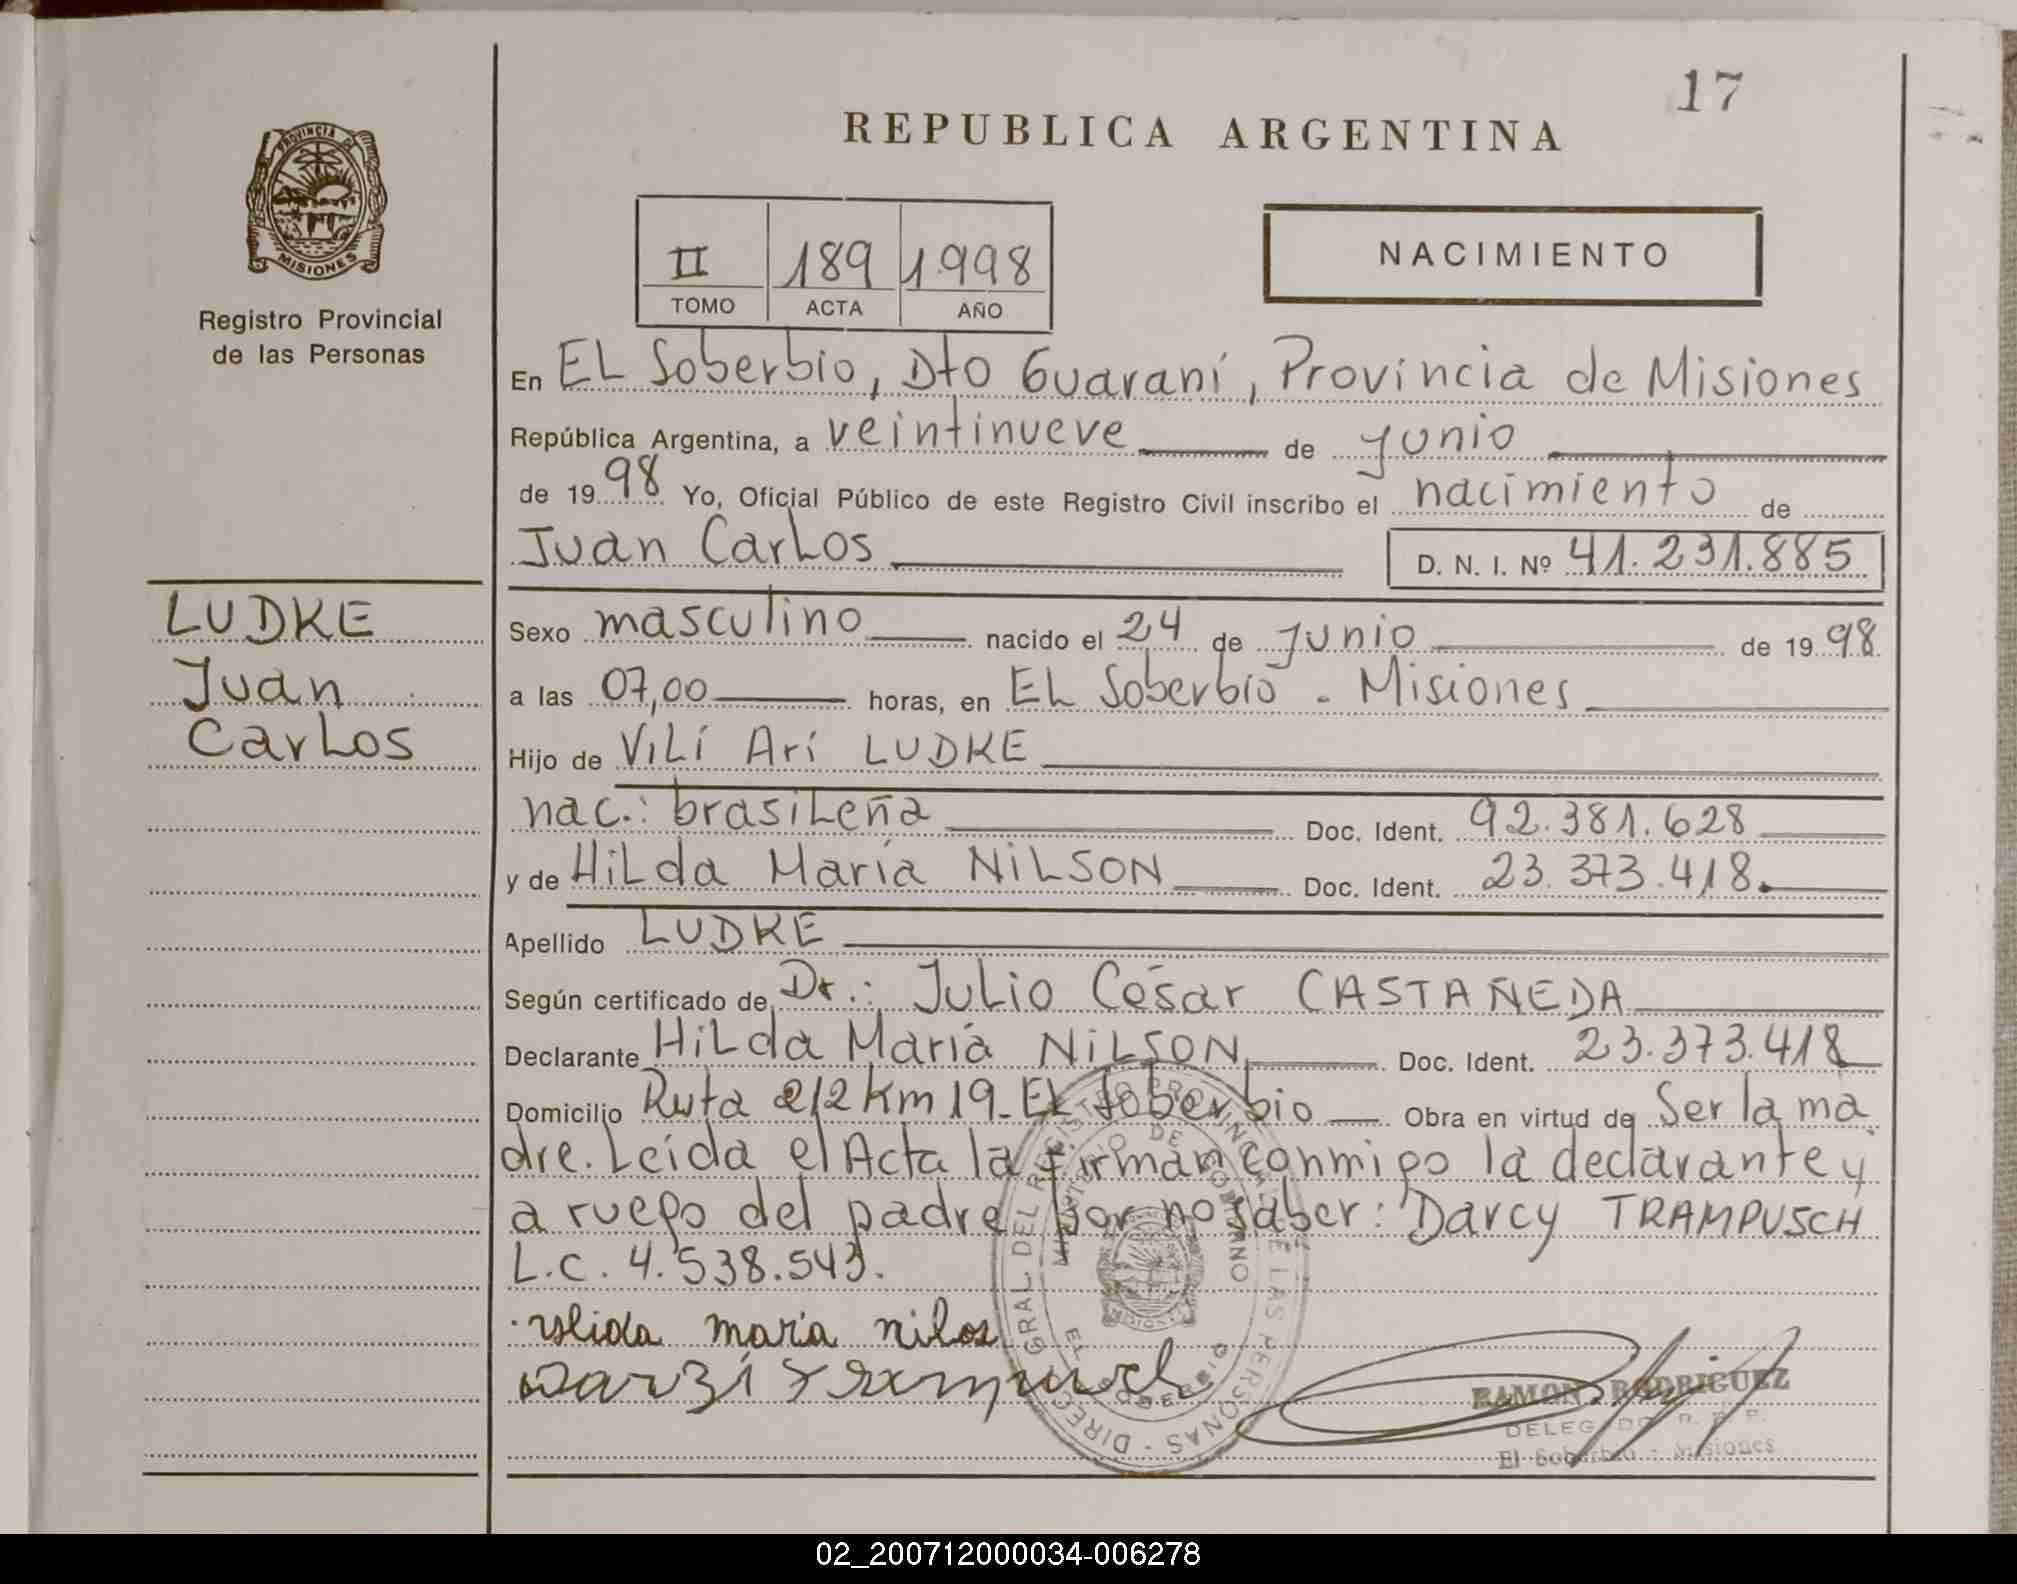 17
REPUBLICA ARGENTINA
PROVINCIA DE MISIONES
Registro Provincial
de las Personas
II 189 1998
TOMO ACTA AÑO
NACIMIENTO
En EL Soberbio, Dto Guaraní, Provincia de Misiones
República Argentina, a veintinueve de junio
de 1998 Yo, Oficial Público de este Registro Civil inscribo el nacimiento de
Juan Carlos D. N. I. Nº 41.231.885
LUDKE
Juan
Carlos
Sexo masculino nacido el 24 de junio de 1998
a las 07,00 horas, en EL Soberbio - Misiones
Hijo de Vilí Arí LUDKE
nac.: brasileña Doc. Ident. 92.381.628
y de Hilda María NILSON Doc. Ident. 23.373.418.
Apellido LUDKE
Según certificado de Dr.: Julio César CASTAÑEDA
Declarante Hilda María NILSON Doc. Ident. 23.373.418
Domicilio Ruta 212 Km 19 - EL Soberbio Obra en virtud de Ser la ma
dre. Leída el Acta la firman conmigo la declarante y
a ruego del padre por no saber: Darcy TRAMPUSCH
L.C. 4.538.543.
maria
DIRECC. GRAL. DEL REGISTRO PROVINCIAL DE LAS PERSONAS -
MINISTERIO DE GOBIERNO
EL SOBERBIO
RAMON RODRIGUEZ
DELEGADO R. P. P.
El Soberbio - Misiones
02_200712000034-006278